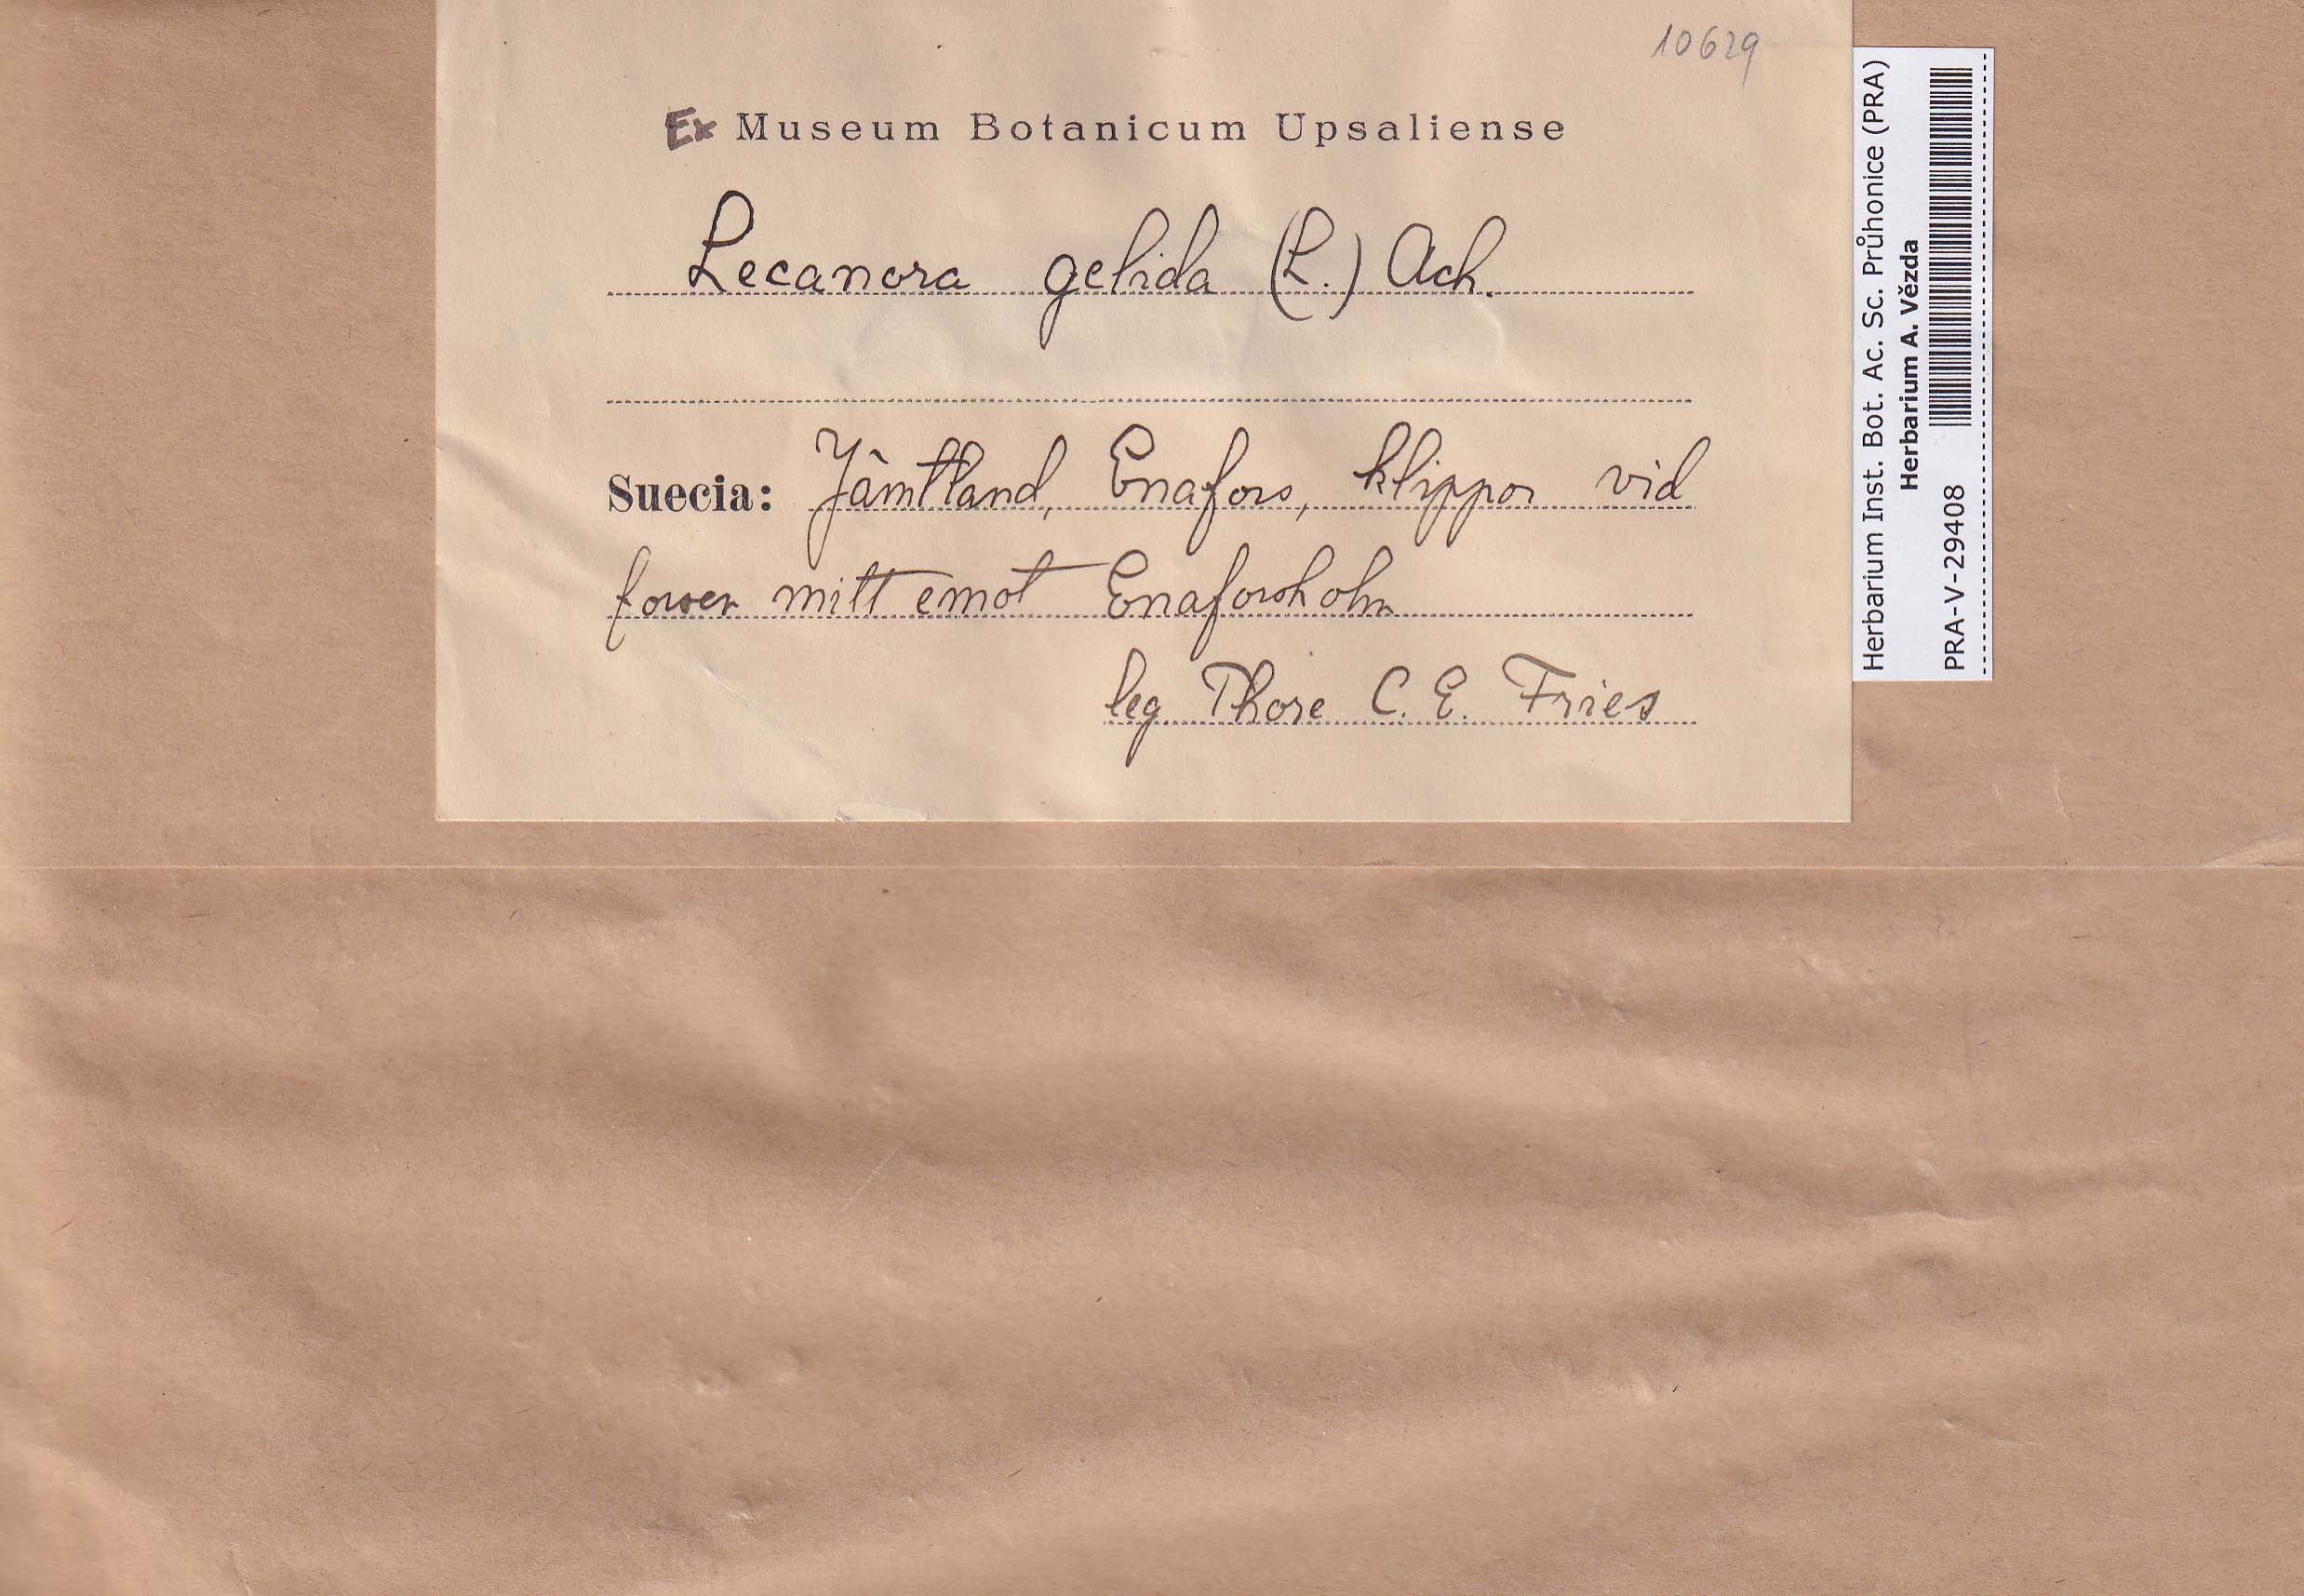 10629
Ex Museum Botanicum Upsaliense
Lecanora gelida (L.) Ach.
Suecia: Jämtland, Enafors, klippor vid
forsen mitt emot Enaforsholm
leg. Thore C. E. Fries
Herbarium Inst. Bot. Ac. Sc. Průhonice (PRA)
Herbarium A. Vězda
PRA-V-29408